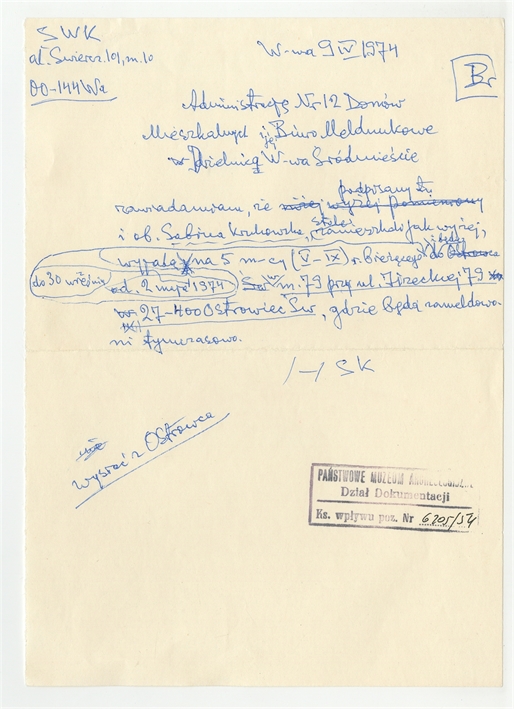 SWK
al. Świercz. 101, m. 10
00-144 Wa
W-wa 9 IV 1974
Br
Administrację Nr 12 Domów
Mieszkalnych i Biuro Meldunkowe
Dzielnicą W-wa Śródmieście
podpisany
zawiadamiam, że niżej wyżej pomieniony
stale
i ob. Sabina Krukowska, zamieszkali jak wyżej,
wyjadą na 5 m-cy (V-IX) r. bieżącego do
do 30 września
od 2 maja 1974 m. 79 przy ul. Iłżeckiej 79
w 27-400 Ostrowiec Św, gdzie będą zameldowa-
ni tymczasowo.
/-/ SK
wysłać z Ostrowca
PAŃSTWOWE MUZEUM ARCHEOLOGICZNE
Dział Dokumentacji
Ks. wpływu poz. Nr 6205/54